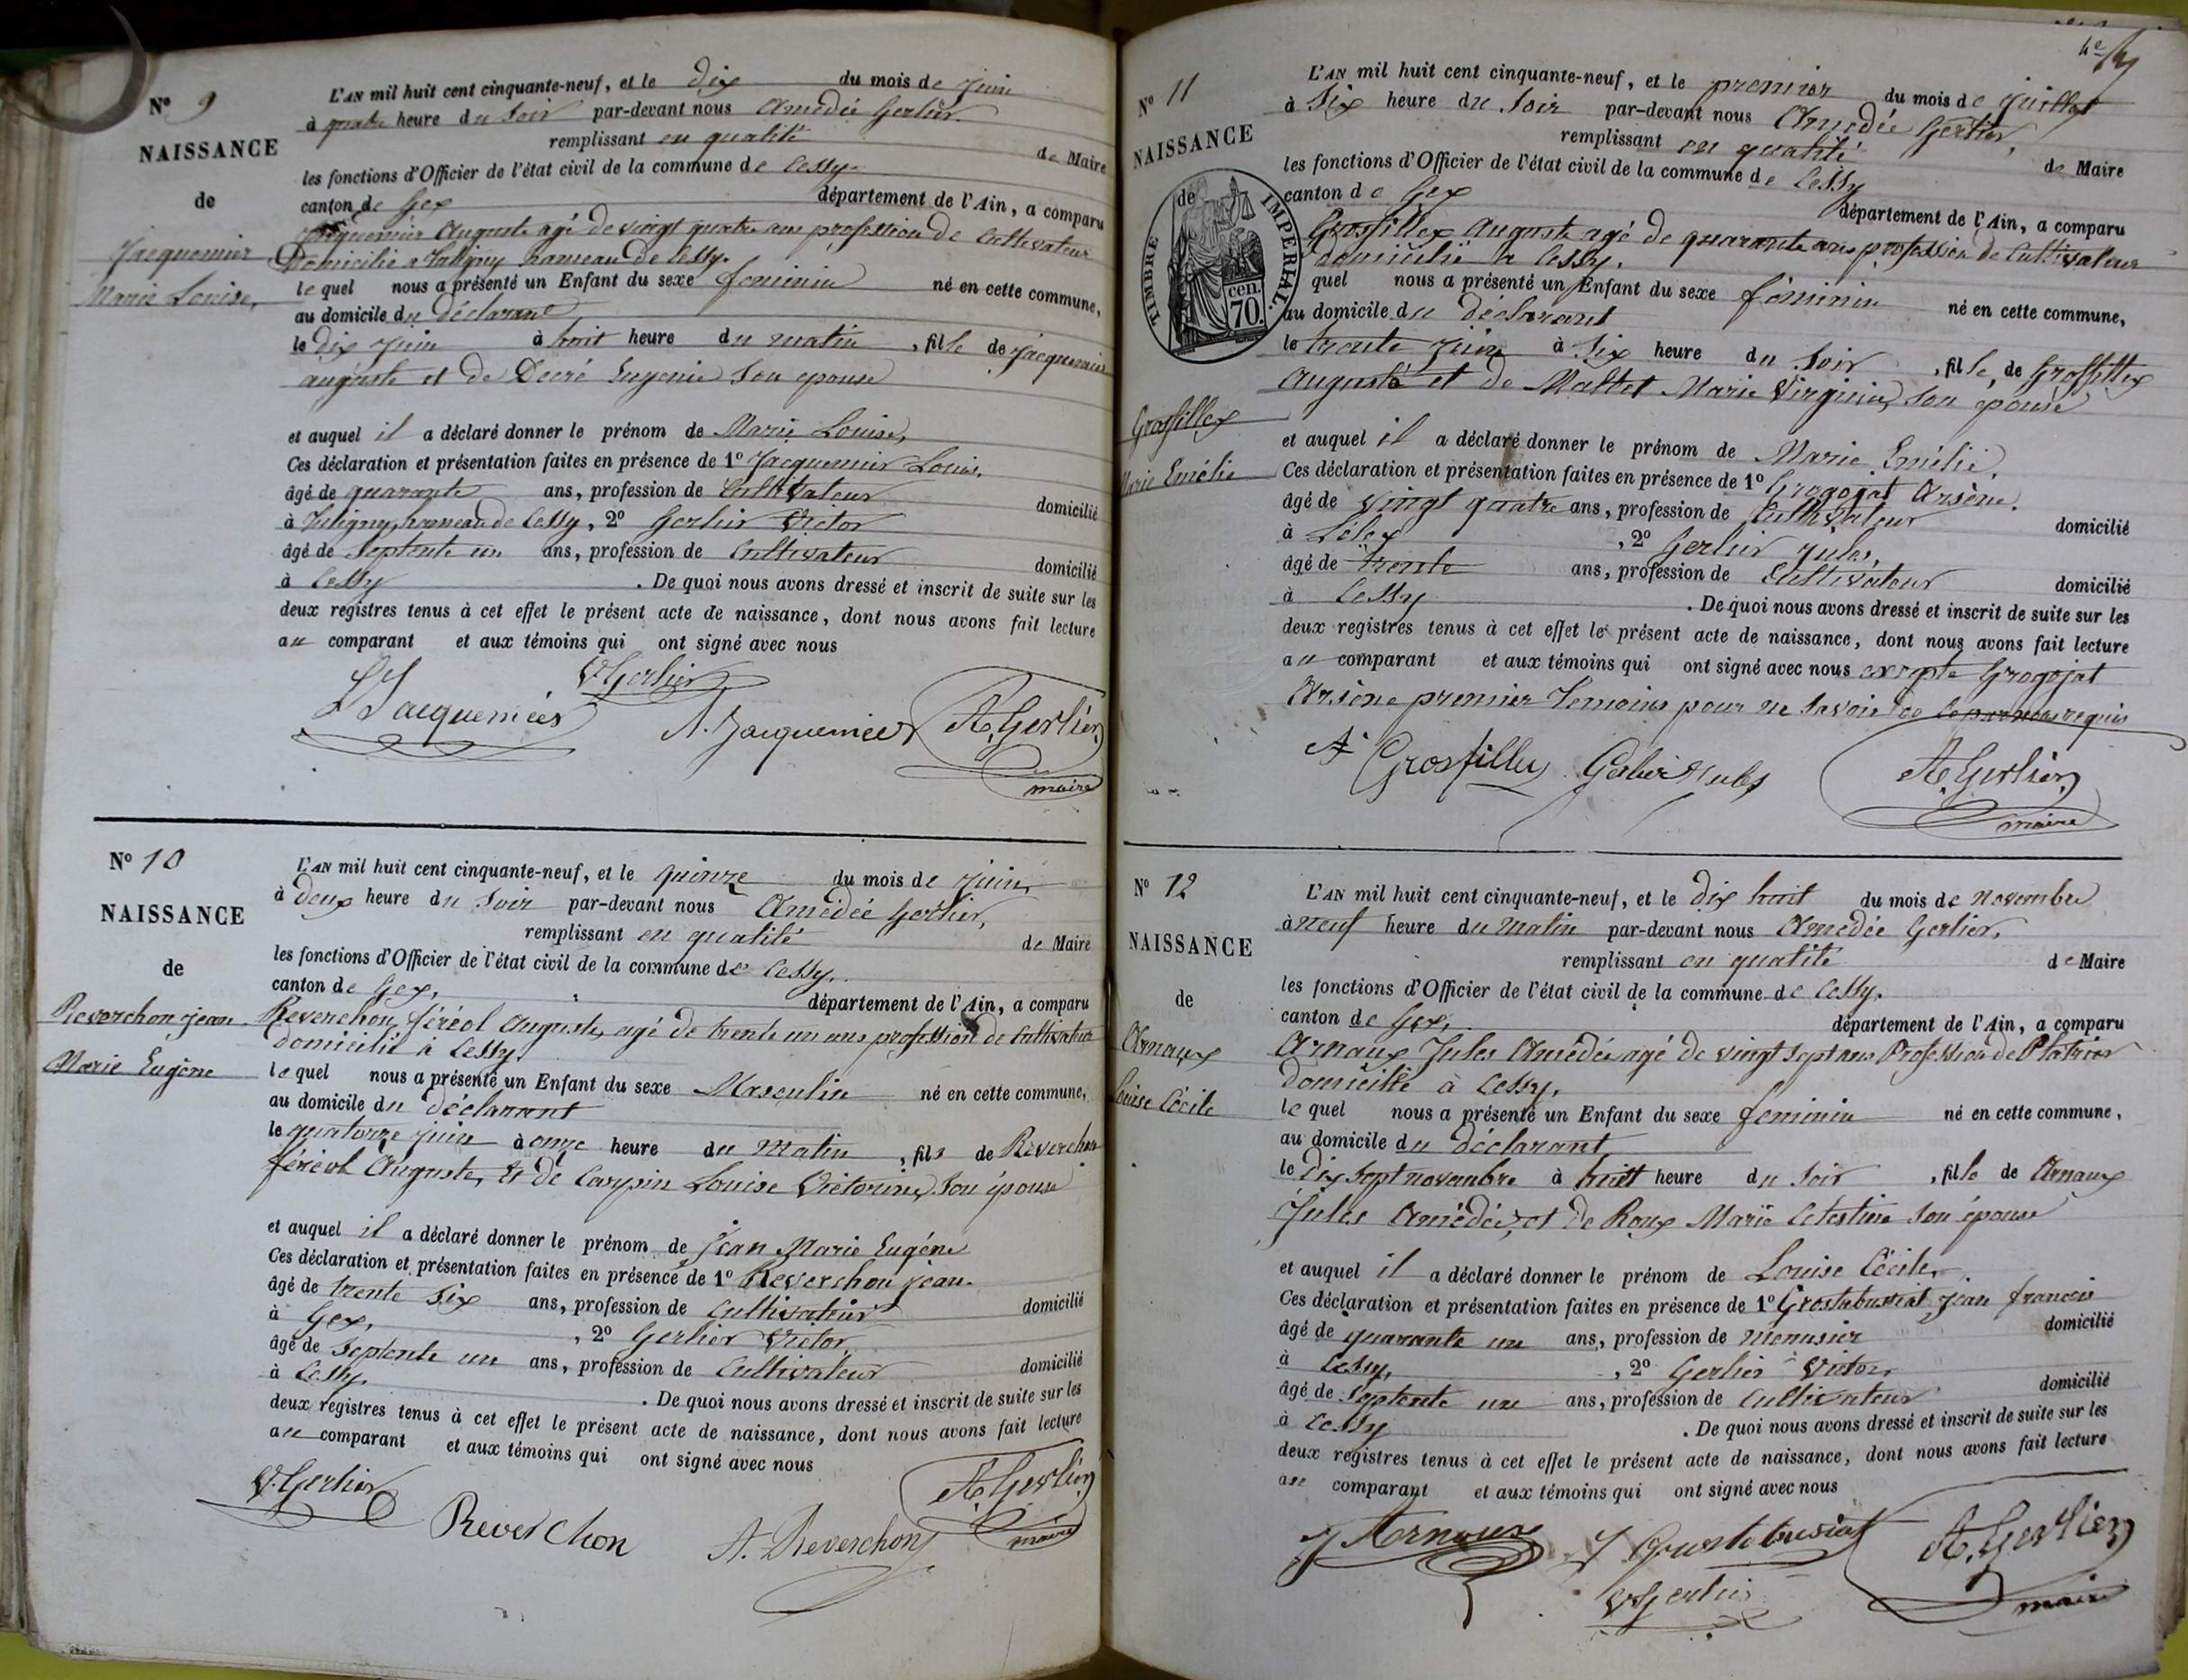 N° 9
NAISSANCE
de
Jacquemier
Marie Louise,
L'AN mil huit cent cinquante-neuf, et le dix du mois de juin
à quatre heure du soir par-devant nous Amédée Gerlier.
remplissant en qualité de Maire
les fonctions d'Officier de l'état civil de la commune de Cessy
canton de Gex département de l'Ain, a comparu
Jacquemier Auguste agé de vingt quatre ans profession de Cultivateur
Domicilié à hameau de Cessy.
lequel nous a présenté un Enfant du sexe feminin né en cette commune,
au domicile du déclarant
le dix juin à huit heure du matin , fille de Jacquemier
auguste et de Decré Eugenie son epouse
et auquel il a déclaré donner le prénom de Marie Louise,
Ces déclaration et présentation faites en présence de 1° Jacquemier Louis.
âgé de quarante ans, profession de Cultivateur domicilié
à hameau de Cessy, 2° Gerlier Victor
âgé de septente un ans, profession de Cultivateur domicilié
à Cessy . De quoi nous avons dressé et inscrit de suite sur les
deux registres tenus à cet effet le présent acte de naissance, dont nous avons fait lecture
au comparant et aux témoins qui ont signé avec nous
V. Gerlier
L Jacquemier A. Jacquemier A. Gerlier
maire
N° 10
NAISSANCE
de
Reverchon jean
Marie Eugène
L'AN mil huit cent cinquante-neuf, et le quinze du mois de juin
à deux heure du soir par-devant nous Amédée Gerlier,
remplissant en qualité de Maire
les fonctions d'Officier de l'état civil de la commune de Cessy.
canton de Gex, département de l'Ain, a comparu
Reverchon féréol Auguste, agé de trente un ans profession de Cultivateur
domicilié à Cessy.
lequel nous a présenté un Enfant du sexe Masculin né en cette commune,
au domicile du déclarant
le quatorze juin à onze heure du Matin , fils de Reverchon
féréol Auguste, et de Carpin Louise Victorine, son épouse
et auquel il a déclaré donner le prénom de jean Marie Eugéne
Ces déclaration et présentation faites en présence de 1° Reverchon jean.
âgé de trente six ans, profession de Cultivateur domicilié
à Gex, , 2° Gerlier Victor
âgé de septente un ans, profession de Cultivateur domicilié
à Cessy. . De quoi nous avons dressé et inscrit de suite sur les
deux registres tenus à cet effet le présent acte de naissance, dont nous avons fait lecture
au comparant et aux témoins qui ont signé avec nous
V. Gerlier A. Gerlier
Reverchon A. Reverchon maire
N° 11
NAISSANCE
de
TIMBRE IMPERIAL.
70. cen.
Grosfillex
Marie Emélie
L'AN mil huit cent cinquante-neuf, et le premier du mois de juillet
à Six heure du Soir par-devant nous Amédée Gerlier,
remplissant en qualité de Maire
les fonctions d'Officier de l'état civil de la commune de Cessy
canton de Gex département de l'Ain, a comparu
Grosfillex Auguste agé de quarante ans profession de Cultivateur
domicilié à Cessy.
quel nous a présenté un Enfant du sexe féminin né en cette commune,
au domicile du déclarant
le trente juin à Six heure du Soir , fille, de Grosfillex
Auguste et de Maltet Marie Virginie, son epouse
et auquel il a déclaré donner le prénom de Marie Emélie
Ces déclaration et présentation faites en présence de 1° Grogojat Arsène.
âgé de vingt quatre ans, profession de Cultivateur domicilié
à Lélex , 2° Gerlier jules,
âgé de trente ans, profession de Cultivateur domicilié
à Cessy . De quoi nous avons dressé et inscrit de suite sur les
deux registres tenus à cet effet le présent acte de naissance, dont nous avons fait lecture
au comparant et aux témoins qui ont signé avec nous excepte Grogojat
Arsène premier temoins pour ne savoir de ce par nous requis
A. Grosfillex Gerlier Jules A. Gerlier
maire
N° 12
NAISSANCE
de
Arnaux
Louise Cécile
L'AN mil huit cent cinquante-neuf, et le dix huit du mois de novembre
à neuf heure du Matin par-devant nous Amédée Gerlier,
remplissant en qualité de Maire
les fonctions d'Officier de l'état civil de la commune de Cessy.
canton de Gex, département de l'Ain, a comparu
Arnaux Jules Amédée agé de vingt sept ans Profession de Platrier
domicilié à Cessy,
lequel nous a présenté un Enfant du sexe feminin né en cette commune,
au domicile du déclarant
le dix sept novembre à huit heure du soir , fille de Arnaux
Jules Amédée, et de Roux Marie Celestine son épouse
et auquel il a déclaré donner le prénom de Louise Cécile,
Ces déclaration et présentation faites en présence de 1° Grostabussiat jean francois
âgé de quarante un ans, profession de menusier domicilié
à Cessy, , 2° Gerlier Victor,
âgé de septente un ans, profession de Cultivateur domicilié
à Cessy . De quoi nous avons dressé et inscrit de suite sur les
deux registres tenus à cet effet le présent acte de naissance, dont nous avons fait lecture
au comparant et aux témoins qui ont signé avec nous
J Arnoux J Grostabusiat A. Gerlier
V. Gerlier maire